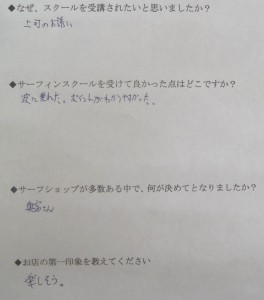 ◆なぜ、スクールを受講されたいと思いましたか?
上司のお誘い
◆サーフィンスクールを受けて良かった点はどこですか?
波に乗れた。
◆サーフショップが多数ある中で、何が決めてとなりましたか?
さん
◆お店の第一印象を教えてください
楽しそう。